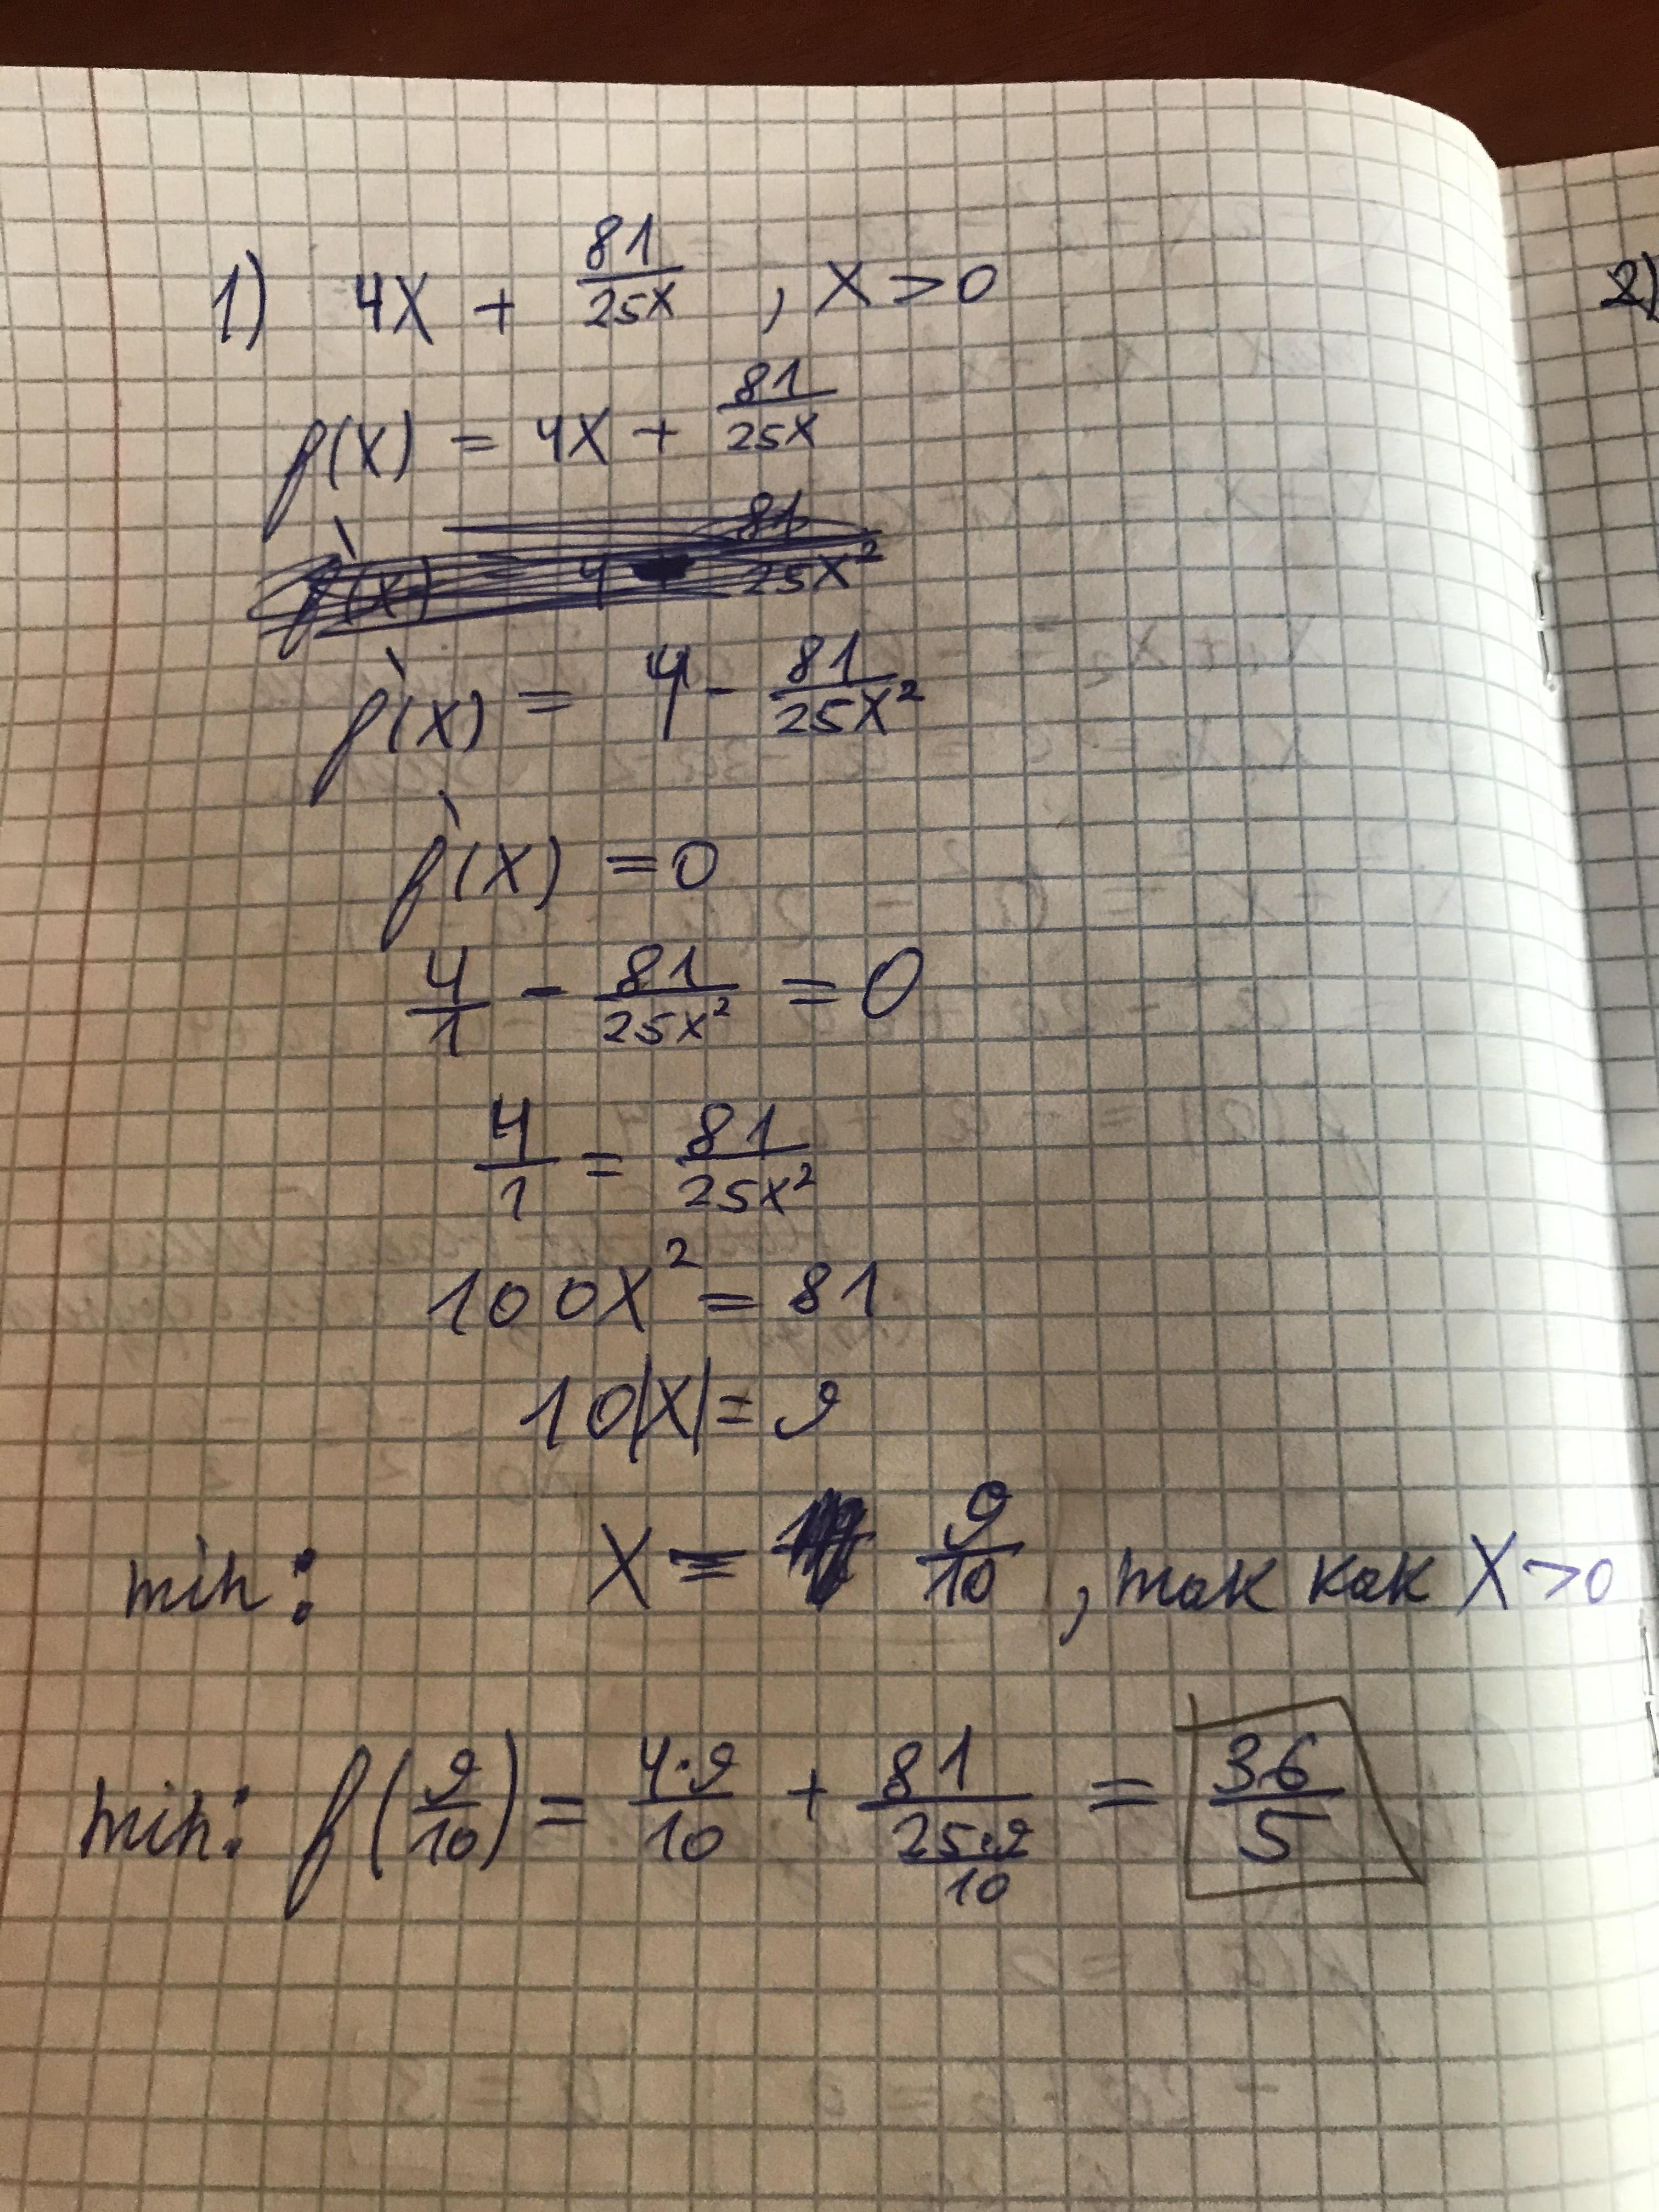 1) 4x + 81/25x , x > 0
f(x) = 4x + 81/25x
f`(x) = 4 - 81/25x²
f`(x) = 0
4/1 - 81/25x² = 0
4/1 = 81/25x²
100x² = 81
10|x| = 9
min: x = 9/10 , так как x > 0
min: f(9/10) = 4·9/10 + 81/(25·9/10) = 36/5
2)